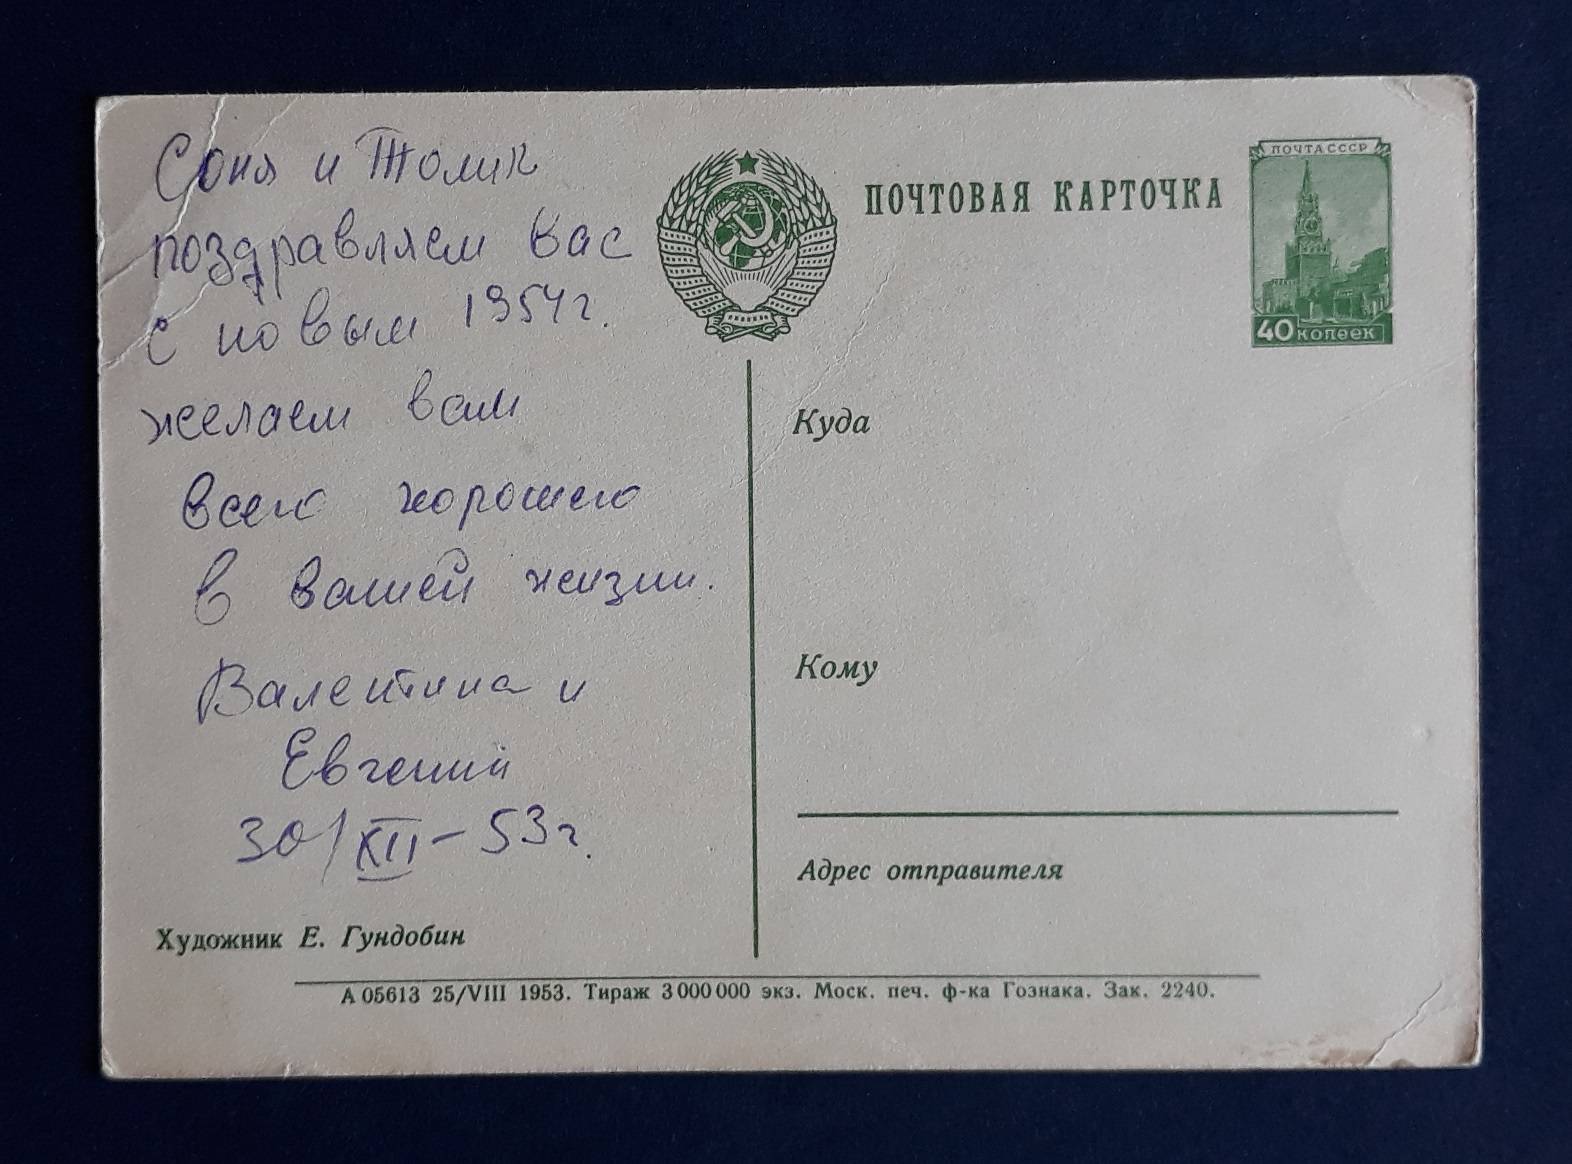 Соня и Толик
поздравляем вас
с новым 1954г.
желаем вам
всего хорошего
в вашей жизни.
Валентина и
Евгений
30/XII-53г.
Художник Е. Гундобин
ПОЧТОВАЯ КАРТОЧКА
ПОЧТА СССР
40 КОПЕЕК
Куда
Кому
Адрес отправителя
А 05613 25/VIII 1953. Тираж 3 000 000 экз. Моск. печ. ф-ка Гознака. Зак. 2240.